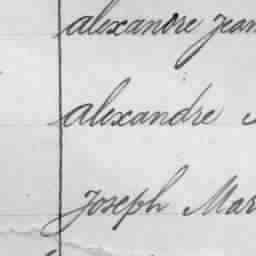 alexandre Jean
alexandre
Joseph Mar